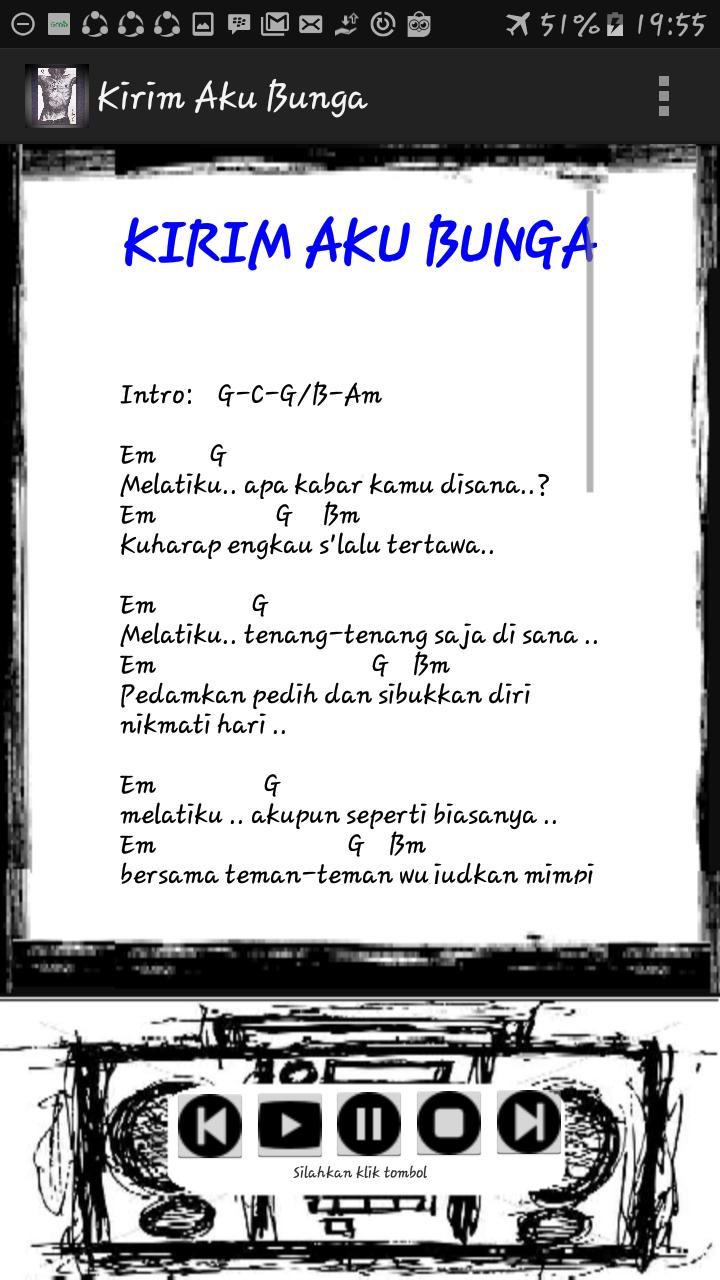 Grab
51% 19:55
Kirim Aku Bunga
KIRIM AKU BUNGA
Intro: G-C-G/B-Am
Em G
Melatiku.. apa kabar kamu disana..?
Em G Bm
Kuharap engkau s'lalu tertawa..
Em G
Melatiku.. tenang-tenang saja di sana ..
Em G Bm
Pedamkan pedih dan sibukkan diri
nikmati hari ..
Em G
melatiku .. akupun seperti biasanya ..
Em G Bm
bersama teman-teman wujudkan mimpi
Silahkan klik tombol